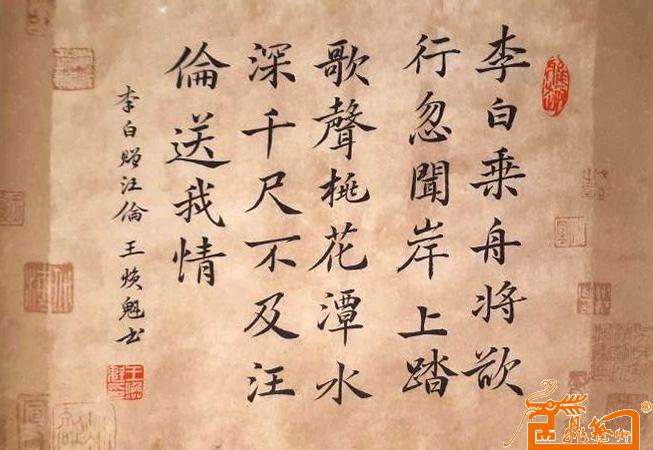 李白乘舟將欲
行忽聞岸上踏
歌聲桃花潭水
深千尺不及汪
倫送我情
李白贈汪倫 王焕魁书